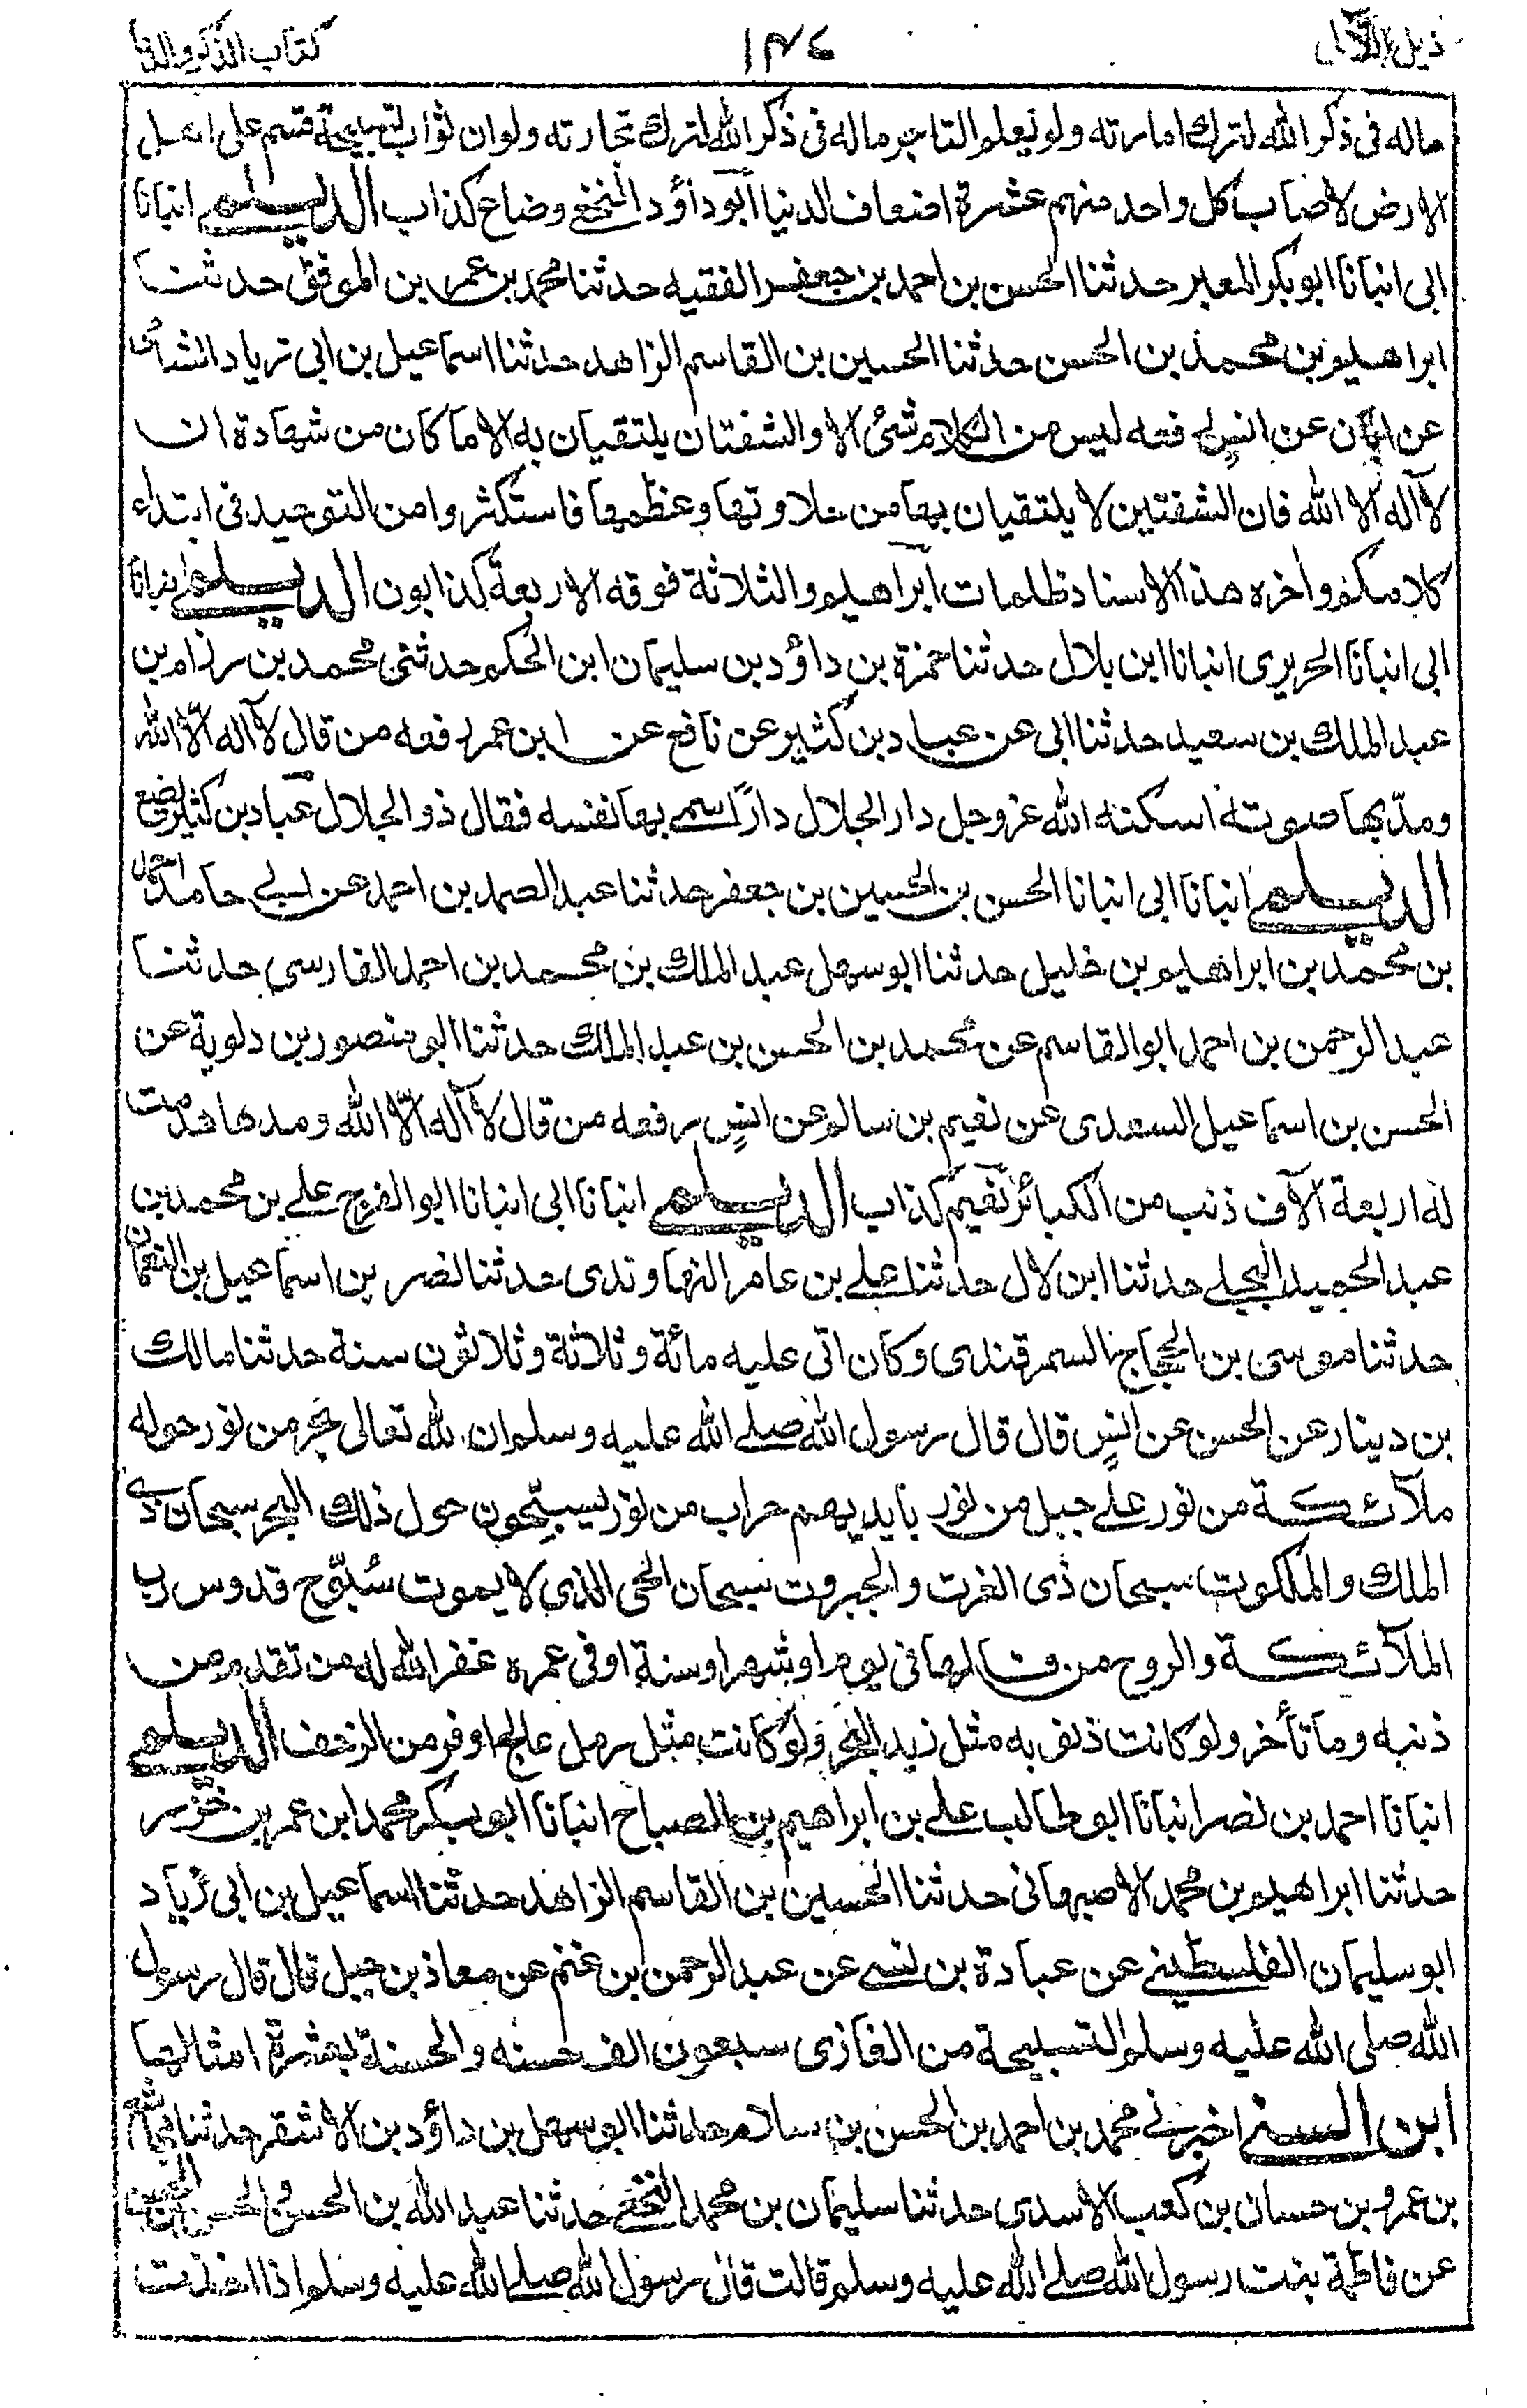 ذيل اللآلى ١٤٧ كتاب الذكر والدعا
ماله فى ذكر الله لترك امارته ولو يعلم التاجر ماله فى ذكر الله لترك تجارته ولو ان ثواب تسبيحة قسم على اهل
الارض لاصاب كل واحد منهم عشرة اضعاف الدنيا ابو داؤد النخعى وضاع كذاب الديلمى انبانا
ابى انبانا ابوبكر المعبر حدثنا الحسن بن احمد بن جعفر الفقيه حدثنا محمد بن عمر بن الموفق حدثنا
ابراهيم بن محمد بن الحسن حدثنا الحسين بن القاسم الزاهد حدثنا اسماعيل بن ابى زياد الشامى
عن ابان عن انس رفعه ليس من الكلام شئ الا والشفتان يلتقيان به الا ما كان من شهادة ان
لا آله الا الله فان الشفتين لا يلتقيان بها من حلاوتها وعظمها فاستكثروا من التوحيد فى ابتداء
كلامكم وآخره هذا الاسناد ظلمات ابراهيم والثلاثة فوقه الاربعة كذابون الديلمى انبانا
ابى انبانا الحريرى انبانا ابن بلال حدثنا حمزة بن داؤد بن سليمان ابن الحكم حدثنى محمد بن رزام بن
عبد الملك بن سعيد حدثنا ابى عن عباد بن كثير عن نافع عن ابن عمر رفعه من قال لا آله الا الله
ومد بها صوته اسكنه الله عز وجل دار الجلال دارًا سمى بها نفسه فقال ذو الجلال عباد بن كثير يضع
الديلمى انبانا ابى انبانا الحسن بن الحسين بن جعفر حدثنا عبد الصمد بن احمد عن ابى حامد احمد
بن محمد بن ابراهيم بن خليل حدثنا ابو سهل عبد الملك بن محمد بن احمد الفارسى حدثنا
عبد الرحمن بن احمد ابو القاسم عن محمد بن الحسن بن عبد الملك حدثنا ابو منصور بن دلوية عن
الحسن بن اسماعيل السعدى عن نعيم بن سالم عن انس رفعه من قال لا آله الا الله ومدها هدمت
له اربعة الآف ذنب من الكبائر نعيم كذاب الديلمى انبانا ابى انبانا ابو الفرج على بن محمد بن
عبد الحميد البجلى حدثنا ابن لال حدثنا على بن عامر النهاوندى حدثنا نصر بن اسماعيل بن النعمان
حدثنا موسى بن الحجاج السمرقندى وكان اتى عليه مائة وثلاثة وثلاثون سنة حدثنا مالك
بن دينار عن الحسن عن انس قال قال رسول الله صلى الله عليه وسلم ان لله تعالى بحر من نور حوله
ملآئكة من نور على جبل من نور بايديهم حراب من نور يسبحون حول ذلك البحر سبحان ذى
الملك والملكوت سبحان ذى العزت والجبروت سبحان الحى الذى لا يموت سُبّوح قدوس رب
الملآئكة والروح من قالها فى يوم او شهر او سنة او فى عمره غفر الله له من تقدم من
ذنبه وما تأخر ولو كانت ذنوبه مثل زبد البحر ولو كانت مثل رمل عالج او فر من الزحف الديلمى
انبانا احمد بن نصر انبانا ابو طالب على بن ابراهيم بن الصباح انبانا ابو بكر محمد ابن عمر بن خزر
حدثنا ابراهيم بن محمد الاصبهانى حدثنا الحسين بن القاسم الزاهد حدثنا اسماعيل بن ابى زياد
ابو سليمان الفلسطينى عن عبادة بن نسى عن عبد الرحمن بن غنم عن معاذ بن جبل قال قال رسول
الله صلى الله عليه وسلم التسبيحة من الغازى سبعون الف حسنه والحسنة بعشرة امثالها
ابن السنى اخبرنى محمد بن احمد بن الحسن بن سلام حدثنا ابو سهل بن داؤد بن الاشقر حدثنا
بن عمرو بن حسان بن كعب الاسدى حدثنا سليمان بن محمد النخعى حدثنا عبد الله بن الحسن
عن فاطمة بنت رسول الله صلى الله عليه وسلم قالت قال رسول الله صلى الله عليه وسلم اذا اخذت